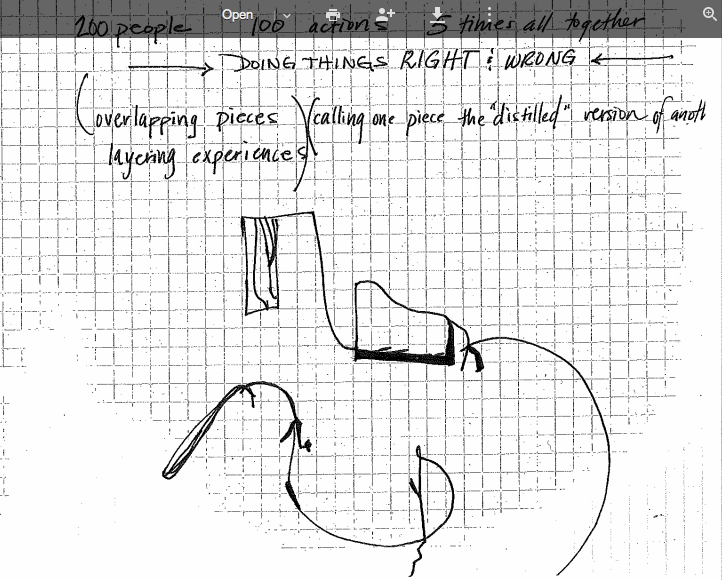 Open
200 people 100 actions 5 times all together
DOING THINGS RIGHT & WRONG
(overlapping pieces layering experiences)
(calling one piece the "distilled" version of anoth